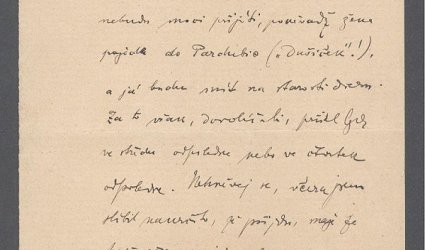 nebudu moci přijíti, poněvadž žena
pojede do Pardubic („Dušiček“!),
a já budu míti na starosti dceru.
Za to však, dovolíš-li, přišel bych
ve středu odpoledne nebo ve čtvrtek
odpoledne. Nehněvej se, včera jsem
slíbil najisto, že přijdu, maje že